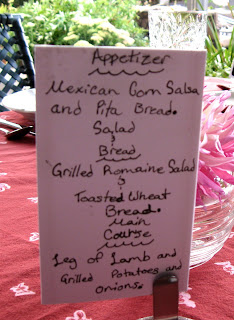 Appetizer
Mexican Corn Salsa
and Pita Bread.
Salad
&
Bread
Grilled Romaine Salad
&
Toasted Wheat
Bread.
Main
Course
Leg of Lamb and
Grilled Potatoes and
Onions.